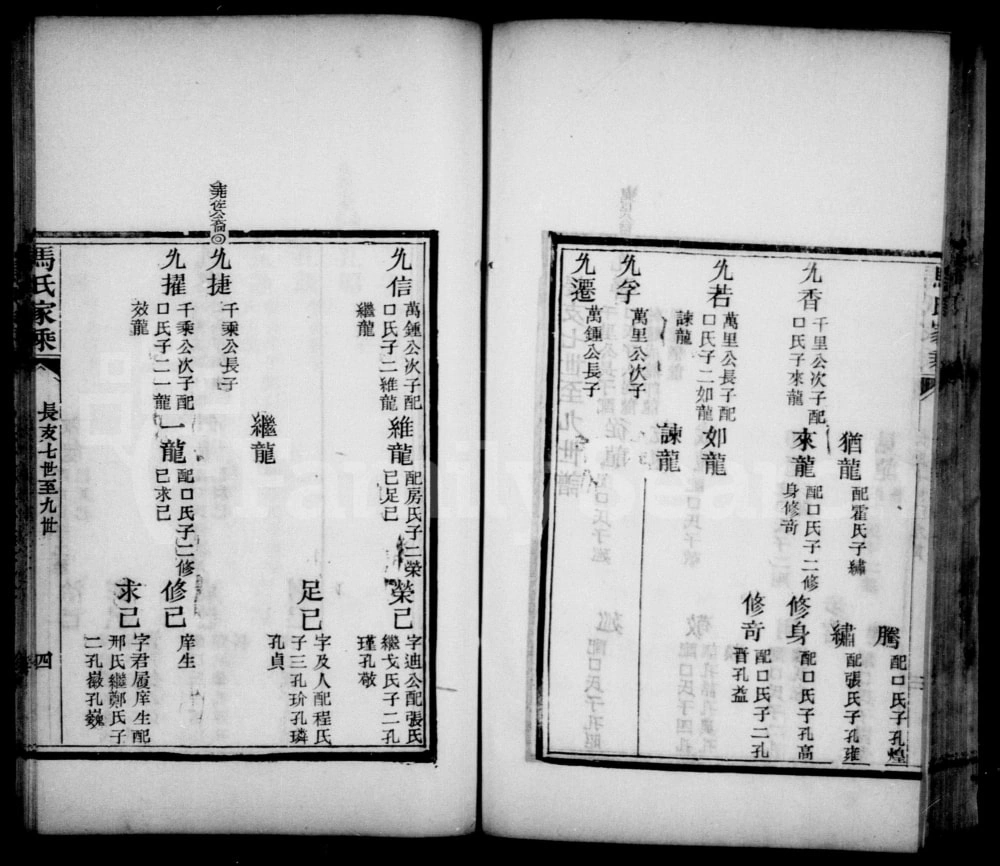 騰
配口氏子孔煌
猶龍
配霍氏子繡
繡
配張氏子孔雍
九香
千里公次子配
口氏子來龍
來龍
配口氏子二修
身修奇
修身
配口氏子孔高
修奇
配口氏子二孔
晋孔益
九若
萬里公長子配
口氏子二如龍
諫龍
如龍
諫龍
九孚
萬里公次子
九遷
萬鍾公長子
九信
萬鍾公次子配
口氏子二維龍
繼龍
維龍
配房氏子二榮
已足已
榮已
字迪公配張氏
繼戈氏子二孔
瑾孔敬
足已
字及人配程氏
子三孔玠孔璘
孔貞
繼龍
公裔
九捷
千乘公長子
九擢
千乘公次子配
口氏子二一龍
效龍
一龍
配口氏子二修
已求已
修已
庠生
求已
字君履庠生配
邢氏繼鄭氏子
二孔嶽孔巍
馬氏家乘
長支七世至九世
四